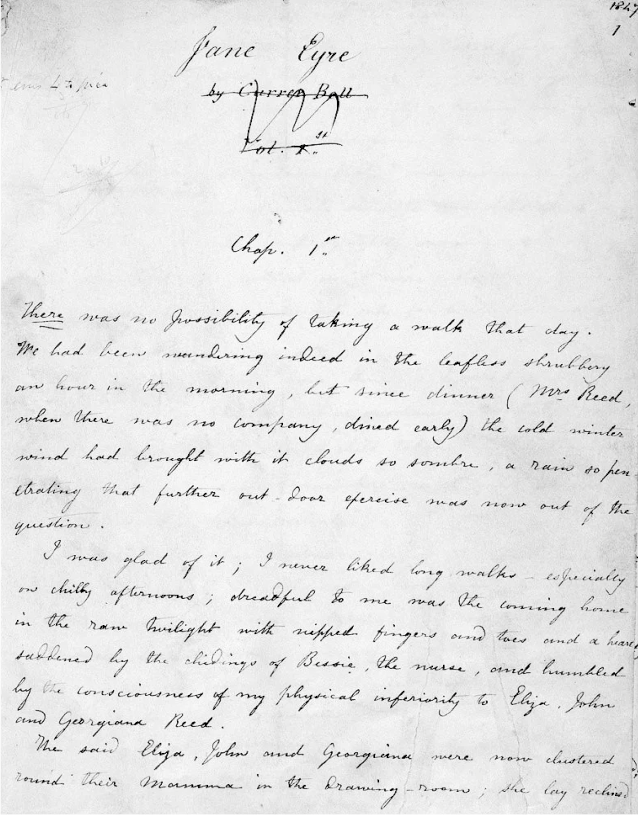 1847
1
Jane Eyre
by Currer Bell
Vol. 1.st
Chap. 1.st
There was no possibility of taking a walk that day.
We had been wandering indeed in the leafless shrubbery
an hour in the morning, but since dinner (Mrs Reed,
when there was no company, dined early) the cold winter
wind had brought with it clouds so sombre, a rain so pen
etrating that further out-door exercise was now out of the
question.
I was glad of it; I never liked long walks - especially
on chilly afternoons; dreadful to me was the coming home
in the raw twilight with nipped fingers and toes and a heart
saddened by the chidings of Bessie, the nurse, and humbled
by the consciousness of my physical inferiority to Eliza, John
and Georgiana Reed.
The said Eliza, John and Georgiana were now clustered
round their Mamma in the drawing-room; she lay reclined